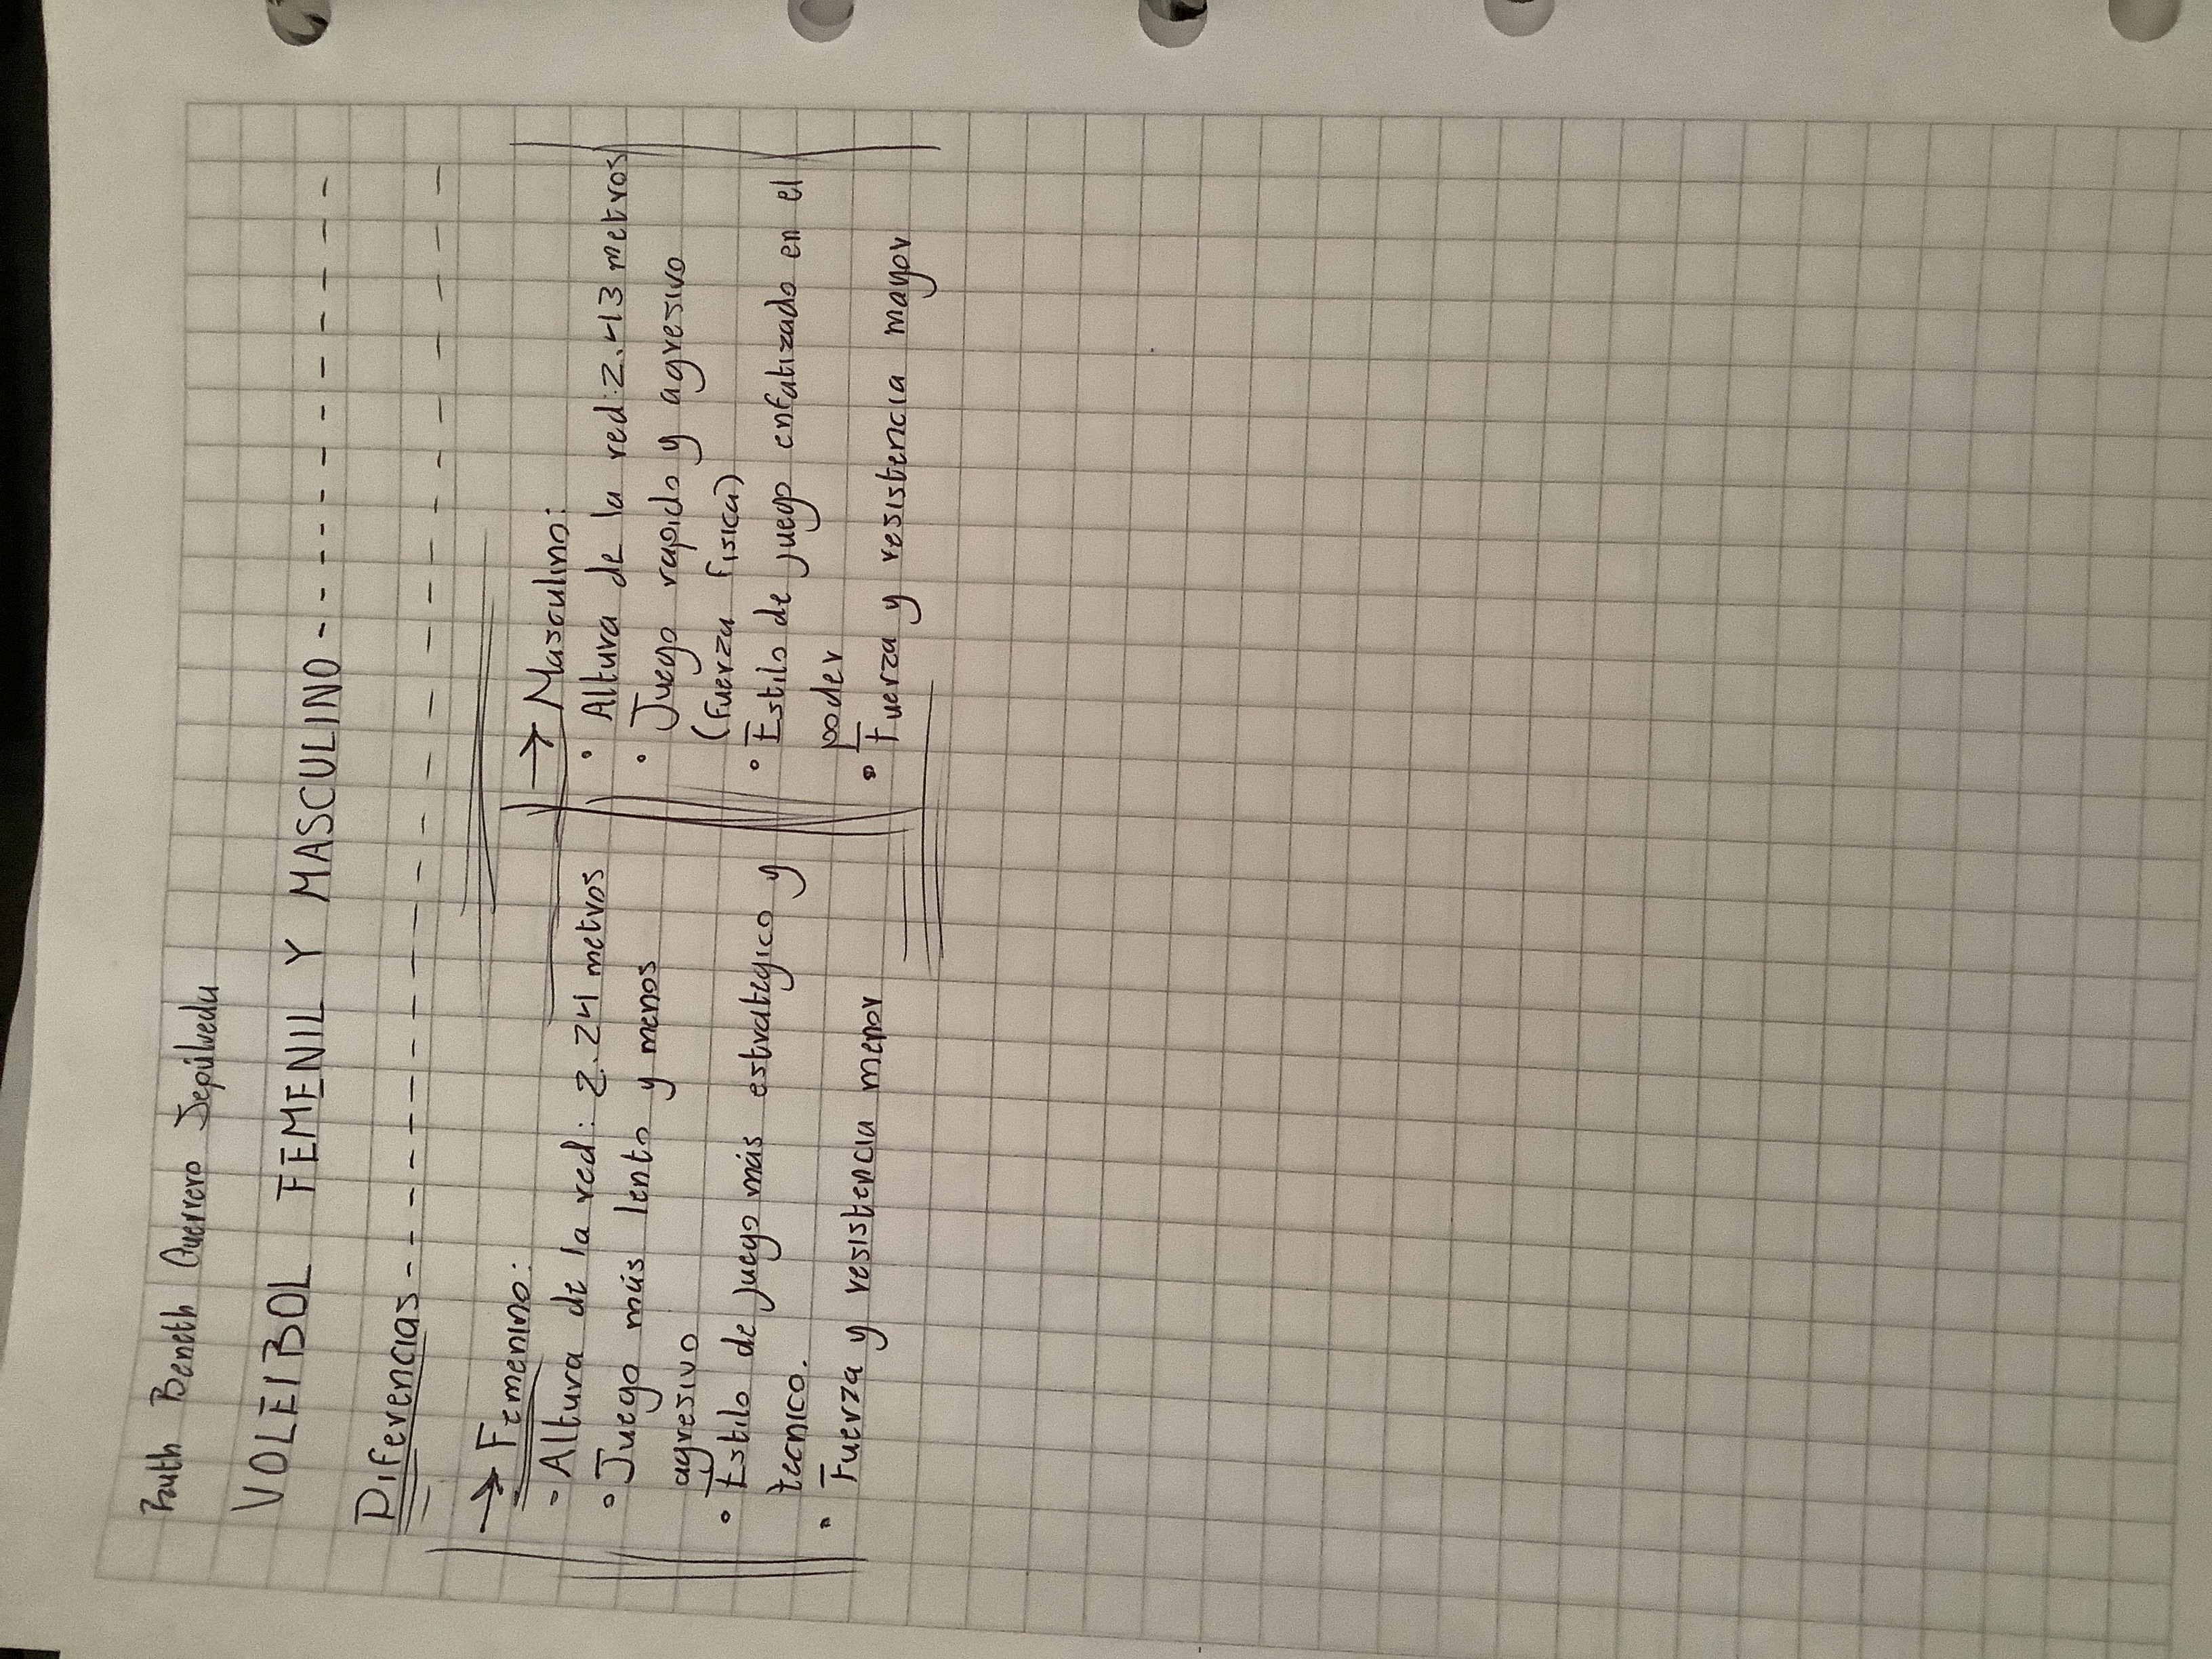 Ruth Beneth Guerrero Sepúlveda
VOLEIBOL FEMENIL Y MASCULINO
Diferencias
→ Femenino:
- Altura de la red: 2.24 metros
• Juego más lento y menos
agresivo
• Estilo de juego más estrategico y
tecnico.
• Fuerza y resistencia menor
→ Masculino:
• Altura de la red: 2.43 metros
• Juego rapido y agresivo
(fuerza fisica)
• Estilo de juego enfatizado en el
poder
• Fuerza y resistencia mayor